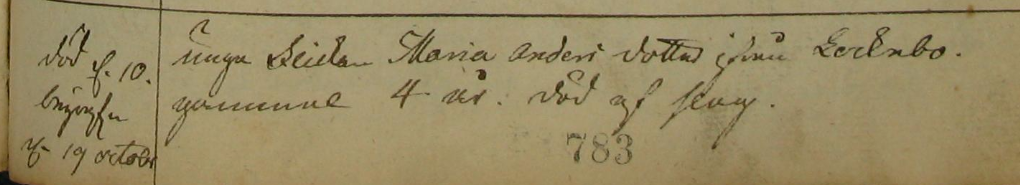 död d. 10.
begrafn
d. 19 octobr
unga Maria anders dotter ifrån Locknbo.
gammal 4 år. död af slag.
783